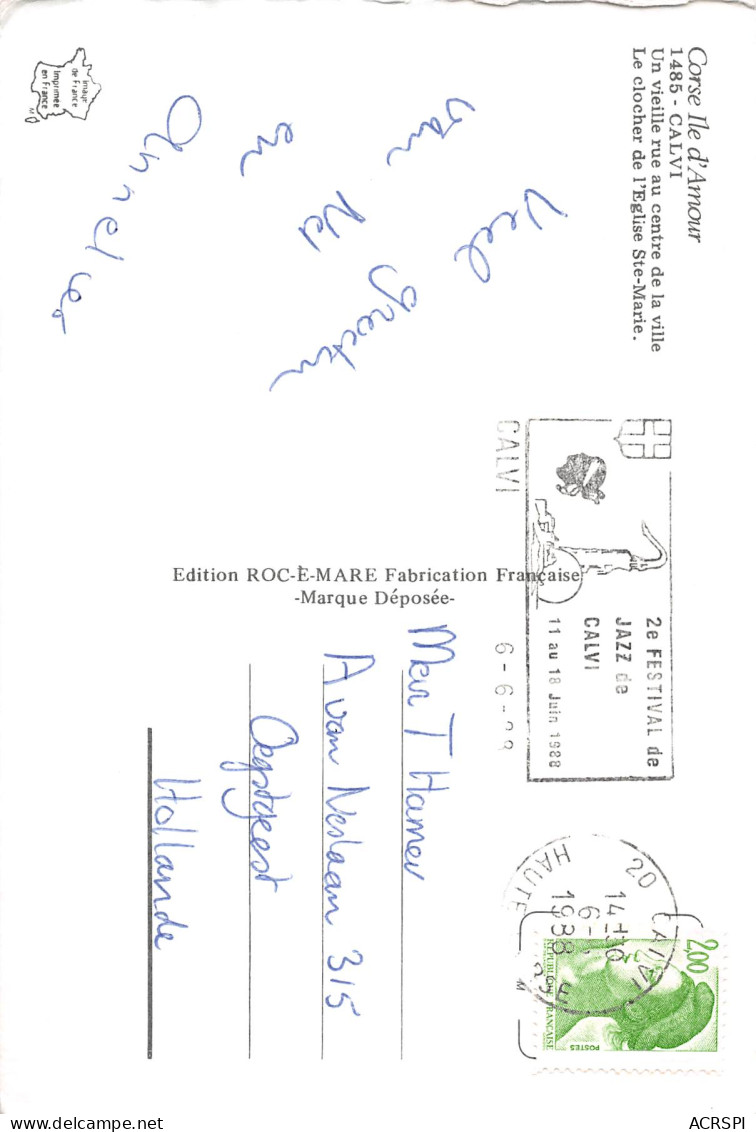 Corse Ile d'Amour
1485 - CALVI
Un vieille rue au centre de la ville
Le clocher de l'Eglise Ste-Marie.
Veel groeten
van
en
Image
de France
Imprimée
en France
Edition ROC-E-MARE Fabrication Française
-Marque Déposée-
CALVI
6-6-
2e FESTIVAL de
JAZZ de
CALVI
11 au 18 Juin 1988
20 CALVI
14H30
6-
1988
HAUTE
2,00
REPUBLIQUE FRANCAISE
POSTES
T Hamer
A van Neslaan 315
Oegstgeest
Hollande
ACRSPI